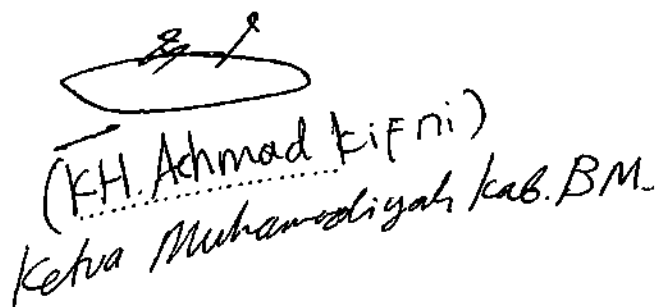 (KH. Achmad Kifni)
Ketua Muhamadiyah Kab. BM.